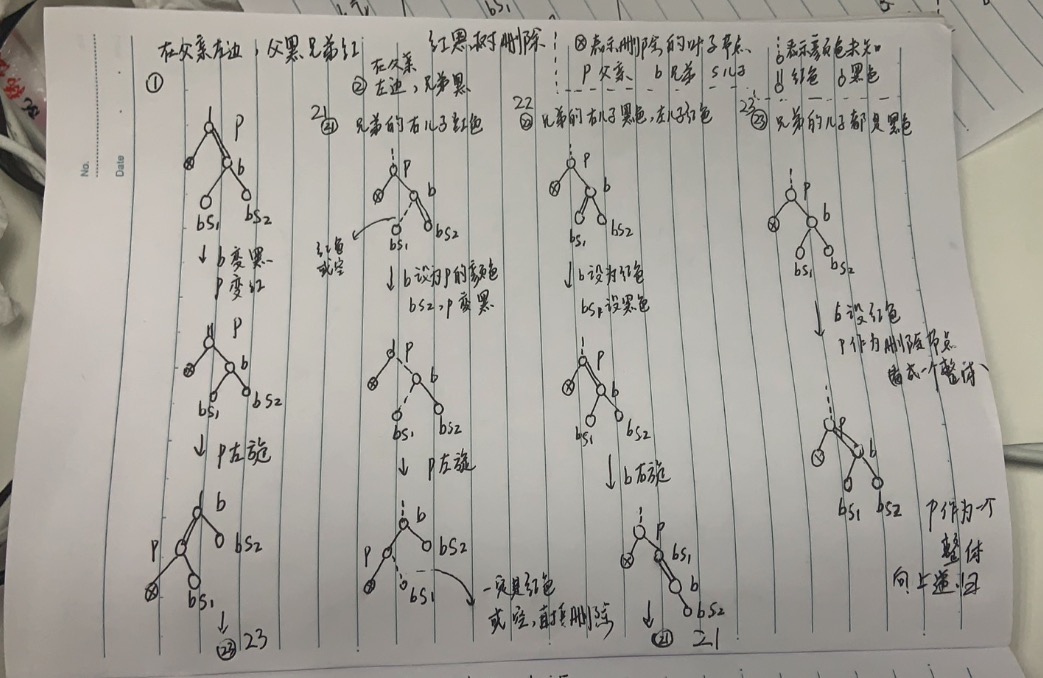 红黑树删除
⊗表示删除的叶子节点
表示颜色未知
P 父亲 b 兄弟 S儿子
红色 黑色
No.
Date
bS₁
① 在父亲左边,父黑兄弟红
P
b
bS₁ bS₂
↓ b变黑
P变红
P
b
bS₁ bS₂
↓ P左旋
b
P
bS₂
bS₁
↓
㉓ 23
② 在父亲
左边,兄弟黑
21
㉑ 兄弟的右儿子红色
P
b
bS₁ bS₂
红色
或空
↓ b设为P的颜色
bS₂,P变黑
P
b
bS₁ bS₂
↓ P左旋
b
P
bS₂
bS₁
一定是红色
或空,直接删除
22
㉒ 兄弟的右儿子黑色,左儿子红色
P
b
bS₁ bS₂
↓ b设为红色
bS₁设黑色
P
b
bS₁ bS₂
↓ b右旋
P
bS₁
b
bS₂
↓
㉑ 21
23
㉓ 兄弟的儿子都是黑色
P
b
bS₁ bS₂
↓ b设红色
P作为删除节点
看成一个整体
P
b
bS₁ bS₂
P作为一个
整体
向上递归